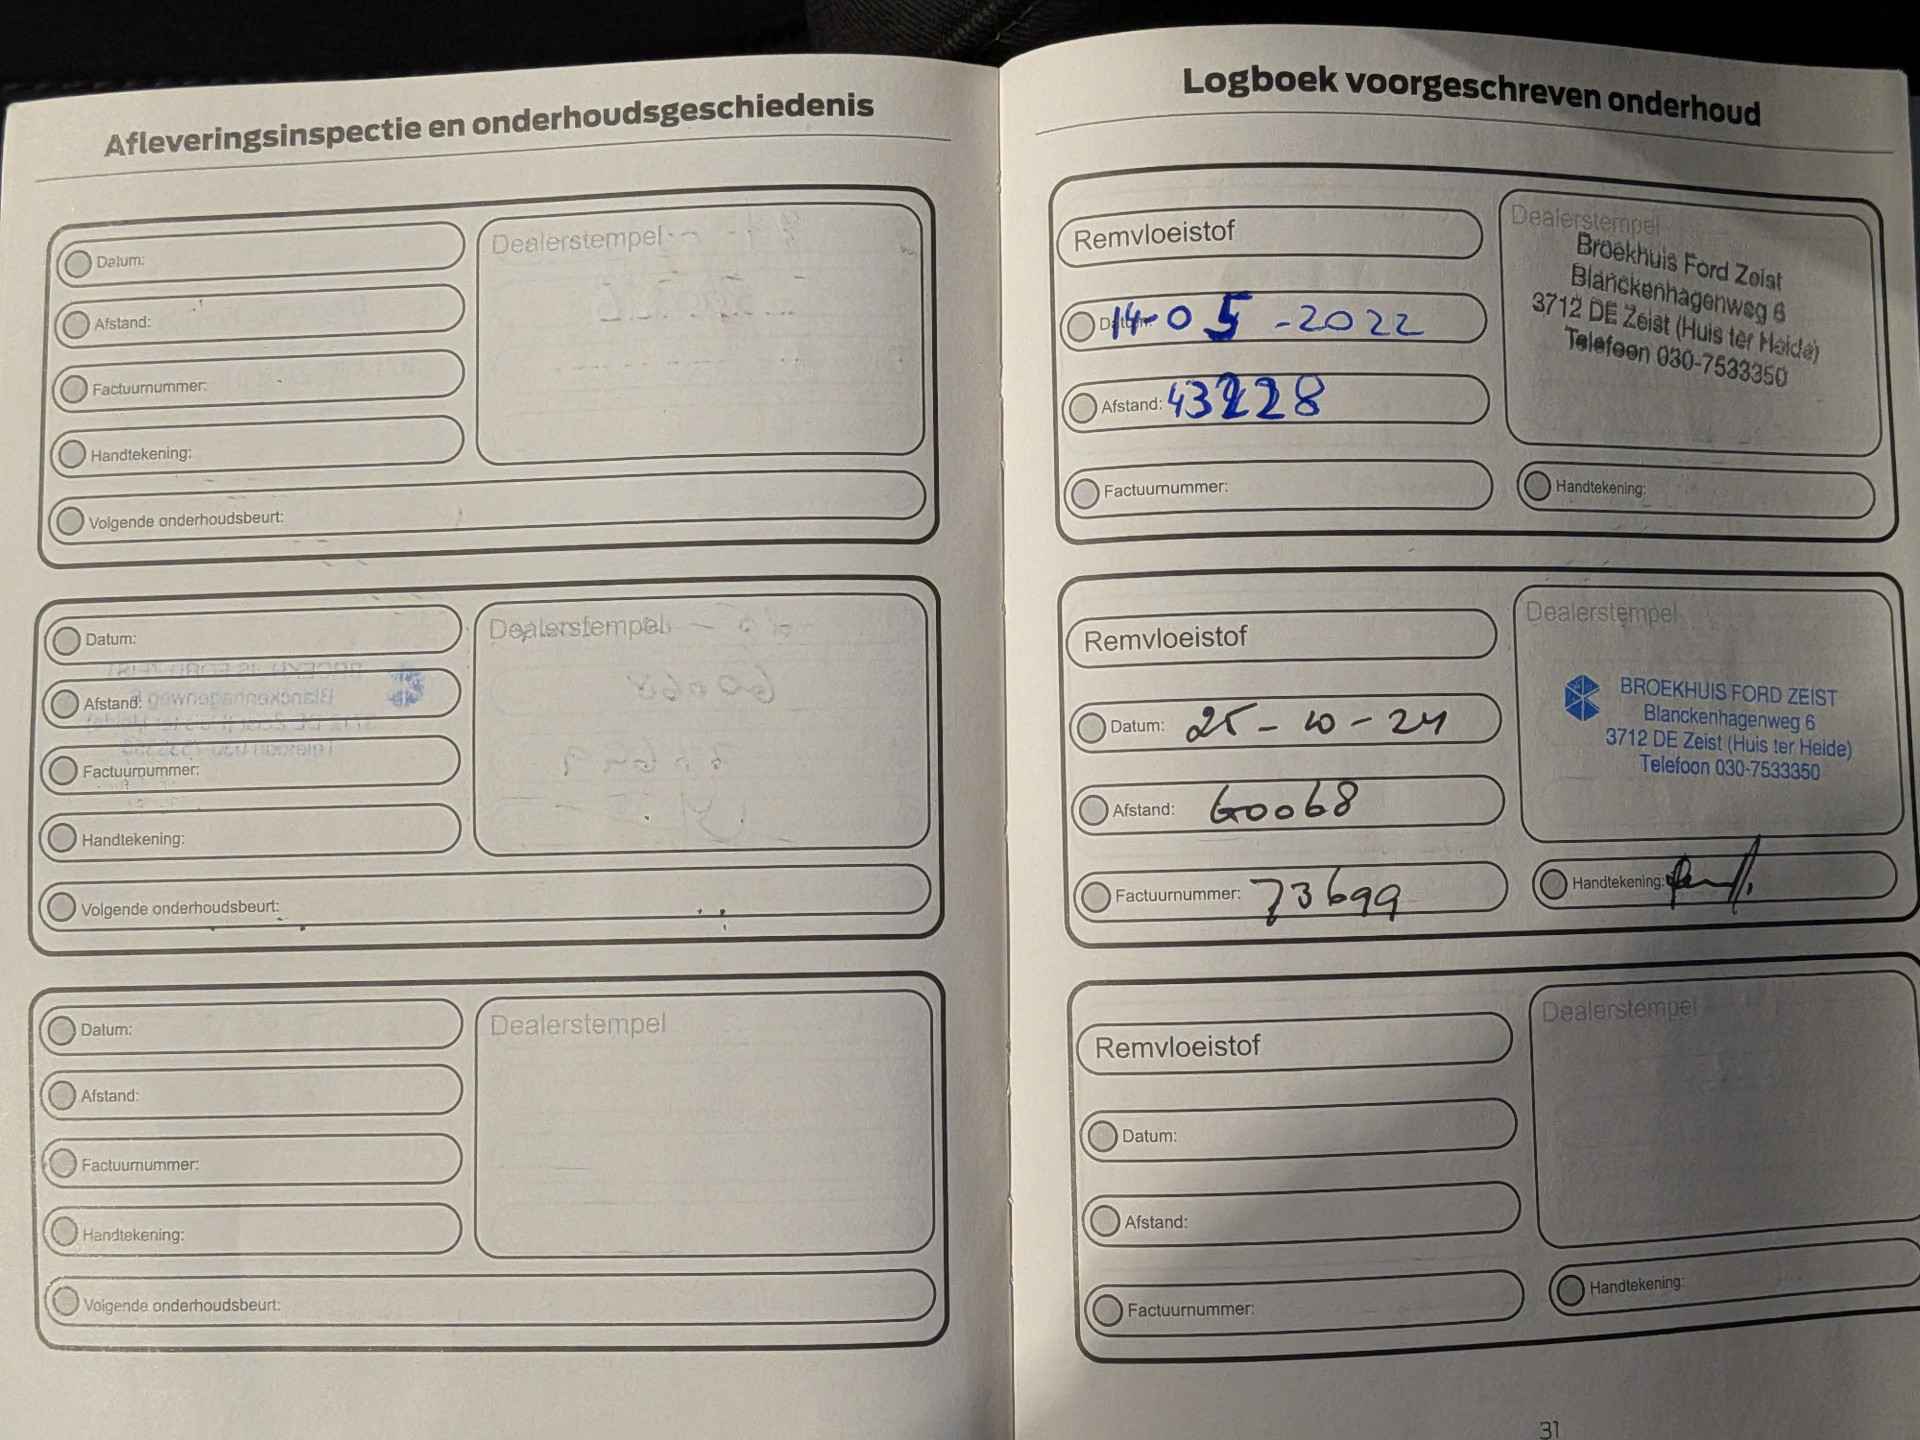 Afleveringsinspectie en onderhoudsgeschiedenis
Datum:
Afstand:
Factuurnummer:
Handtekening:
Volgende onderhoudsbeurt:
Dealerstempel
Datum:
Afstand:
Factuurnummer:
Handtekening:
Volgende onderhoudsbeurt:
Dealerstempel
Datum:
Afstand:
Factuurnummer:
Handtekening:
Volgende onderhoudsbeurt:
Dealerstempel
Logboek voorgeschreven onderhoud
Remvloeistof
Datum: 14-05-2022
Afstand: 43228
Factuurnummer:
Dealerstempel
Broekhuis Ford Zeist
Blanckenhagenweg 6
3712 DE Zeist (Huis ter Heide)
Telefoon 030-7533350
Handtekening:
Remvloeistof
Datum: 25-10-24
Afstand: 60068
Factuurnummer: 73699
Dealerstempel
BROEKHUIS FORD ZEIST
Blanckenhagenweg 6
3712 DE Zeist (Huis ter Heide)
Telefoon 030-7533350
Handtekening:
Remvloeistof
Datum:
Afstand:
Factuurnummer:
Dealerstempel
Handtekening:
31